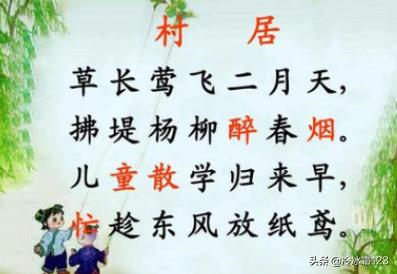 村 居
草长莺飞二月天,
拂堤杨柳醉春烟。
儿童散学归来早,
忙趁东风放纸鸢。
头条@冷冰霜123